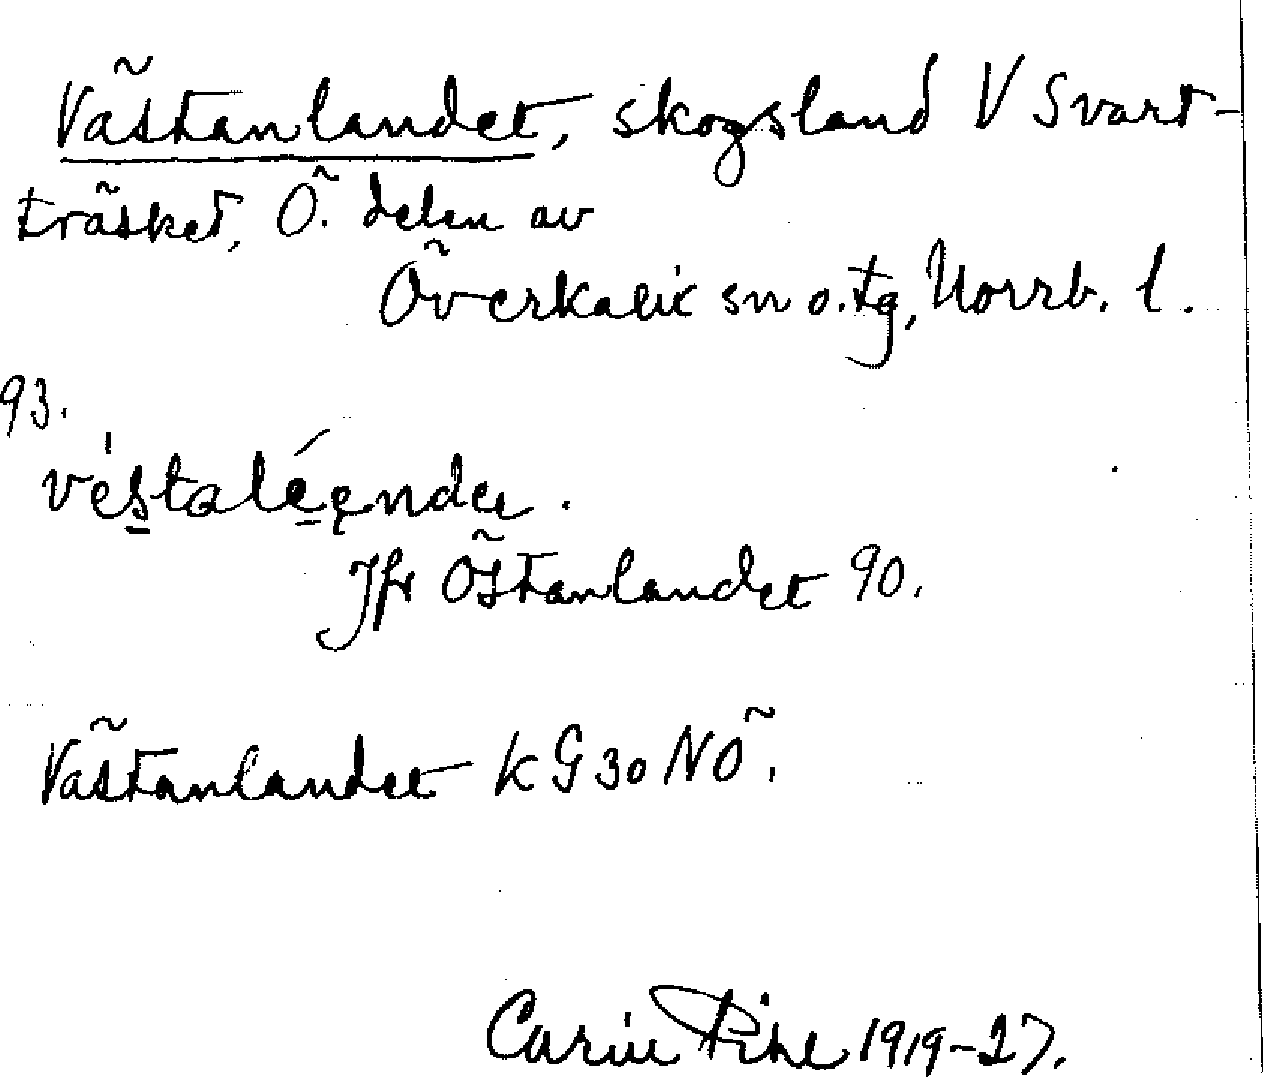 Västanlandet, skogsland V Svart-
träsket, Ö. delen av
Överkalix sn o. tg, Norrb. l.
93.
Jfr Östanlandet 90.
Västanlandet k G 30 NÖ.
Carin Pihl 1919-27.